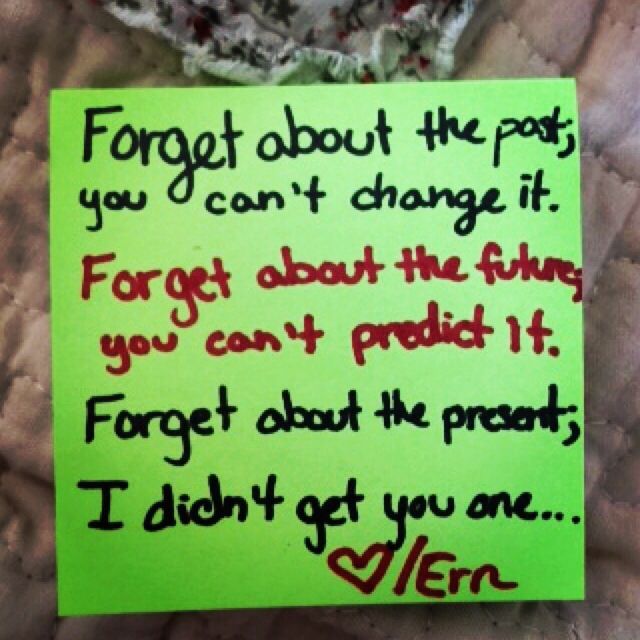 Forget about the past;
you can't change it.
Forget about the future;
you can't predict it.
Forget about the present;
I didn't get you one...
♡/Ern